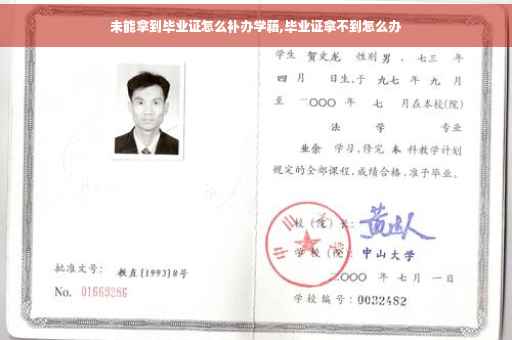 未能拿到毕业证怎么补办学籍,毕业证拿不到怎么办
学生 贺文龙 性别 男 、七三 年
四 月 日生,于 九七 年 九 月
至 二〇〇〇 年 七 月在本校(院)
法 学 专业
业余 学习,修完 本 科教学计划
规定的全部课程,成绩合格,准予毕业。
校(院)长:
学校(院): 中山大学
二〇〇〇 年 七 月 一 日
学校编号:0032482
批准文号: 教直[1993]8号
No. 01669286